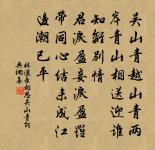 吴山青越山青两
岸青山相送迎谁
知离别情
君泪盈妾泪盈罗
带同心结未成江
边潮已平
林逋长相思吴山青词